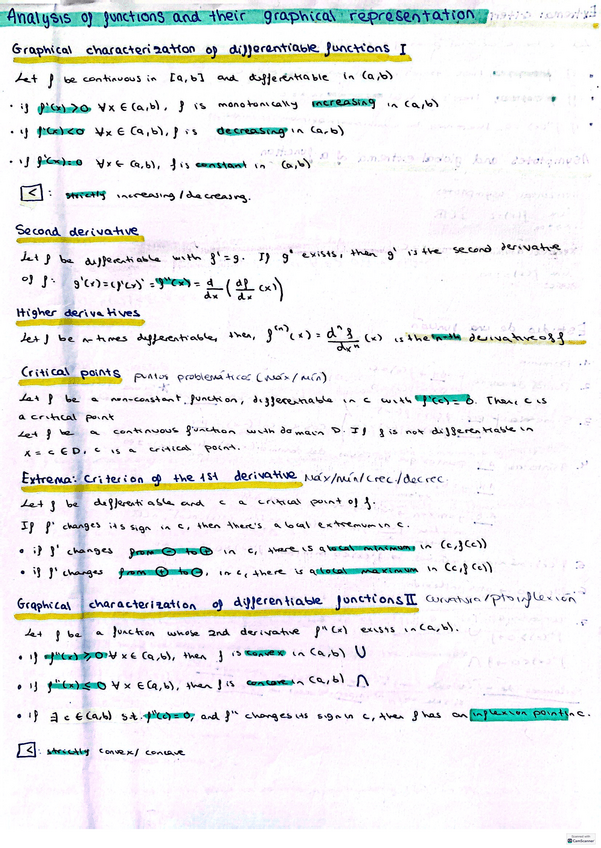 Analysis of functions and their graphical representation
Graphical characterization of differentiable functions I
Let f be continuous in [a,b] and differentiable in (a,b)
• if f'(x)>0 ∀x∈(a,b), f is monotonically increasing in (a,b)
• if f'(x)<0 ∀x∈(a,b), f is decreasing in (a,b)
• if f'(x)=0 ∀x∈(a,b), f is constant in (a,b)
<: strictly increasing/decreasing.
Second derivative
Let f be differentiable with f'=g. If g' exists, then g' is the second derivative
of f: g'(x)=(f'(x))'=f''(x)= d/dx (df/dx (x))
Higher derivatives
Let f be n-times differentiable, then, f⁽ⁿ⁾(x) = dⁿf/dxⁿ (x) is the n-th derivative of f
Critical points puntos problemáticos (máx/mín)
Let f be a non-constant function, differentiable in c with f'(c)=0. Then c is
a critical point
Let f be a continuous function with domain D. If f is not differentiable in
x=c∈D, c is a critical point.
Extrema: Criterion of the 1st derivative Máx/mín/crec/decrec.
Let f be differentiable and c a critical point of f.
If f' changes its sign in c, then there's a local extremum in c.
• if f' changes from ⊖ to ⊕ in c, there is a local minimum in (c,f(c))
• if f' changes from ⊕ to ⊖, in c, there is a local maximum in (c,f(c))
Graphical characterization of differentiable functions II curvatura/pto inflexión
Let f be a function whose 2nd derivative f''(x) exists in (a,b).
• if f''(x)≥0 ∀x∈(a,b), then f is convex in (a,b) ∪
• if f''(x)≤0 ∀x∈(a,b), then f is concave in (a,b) ∩
• if ∃ c∈(a,b) s.t. f''(c)=0, and f'' changes its sign in c, then f has an inflexion point in c.
<: strictly convex/concave
CamScanner